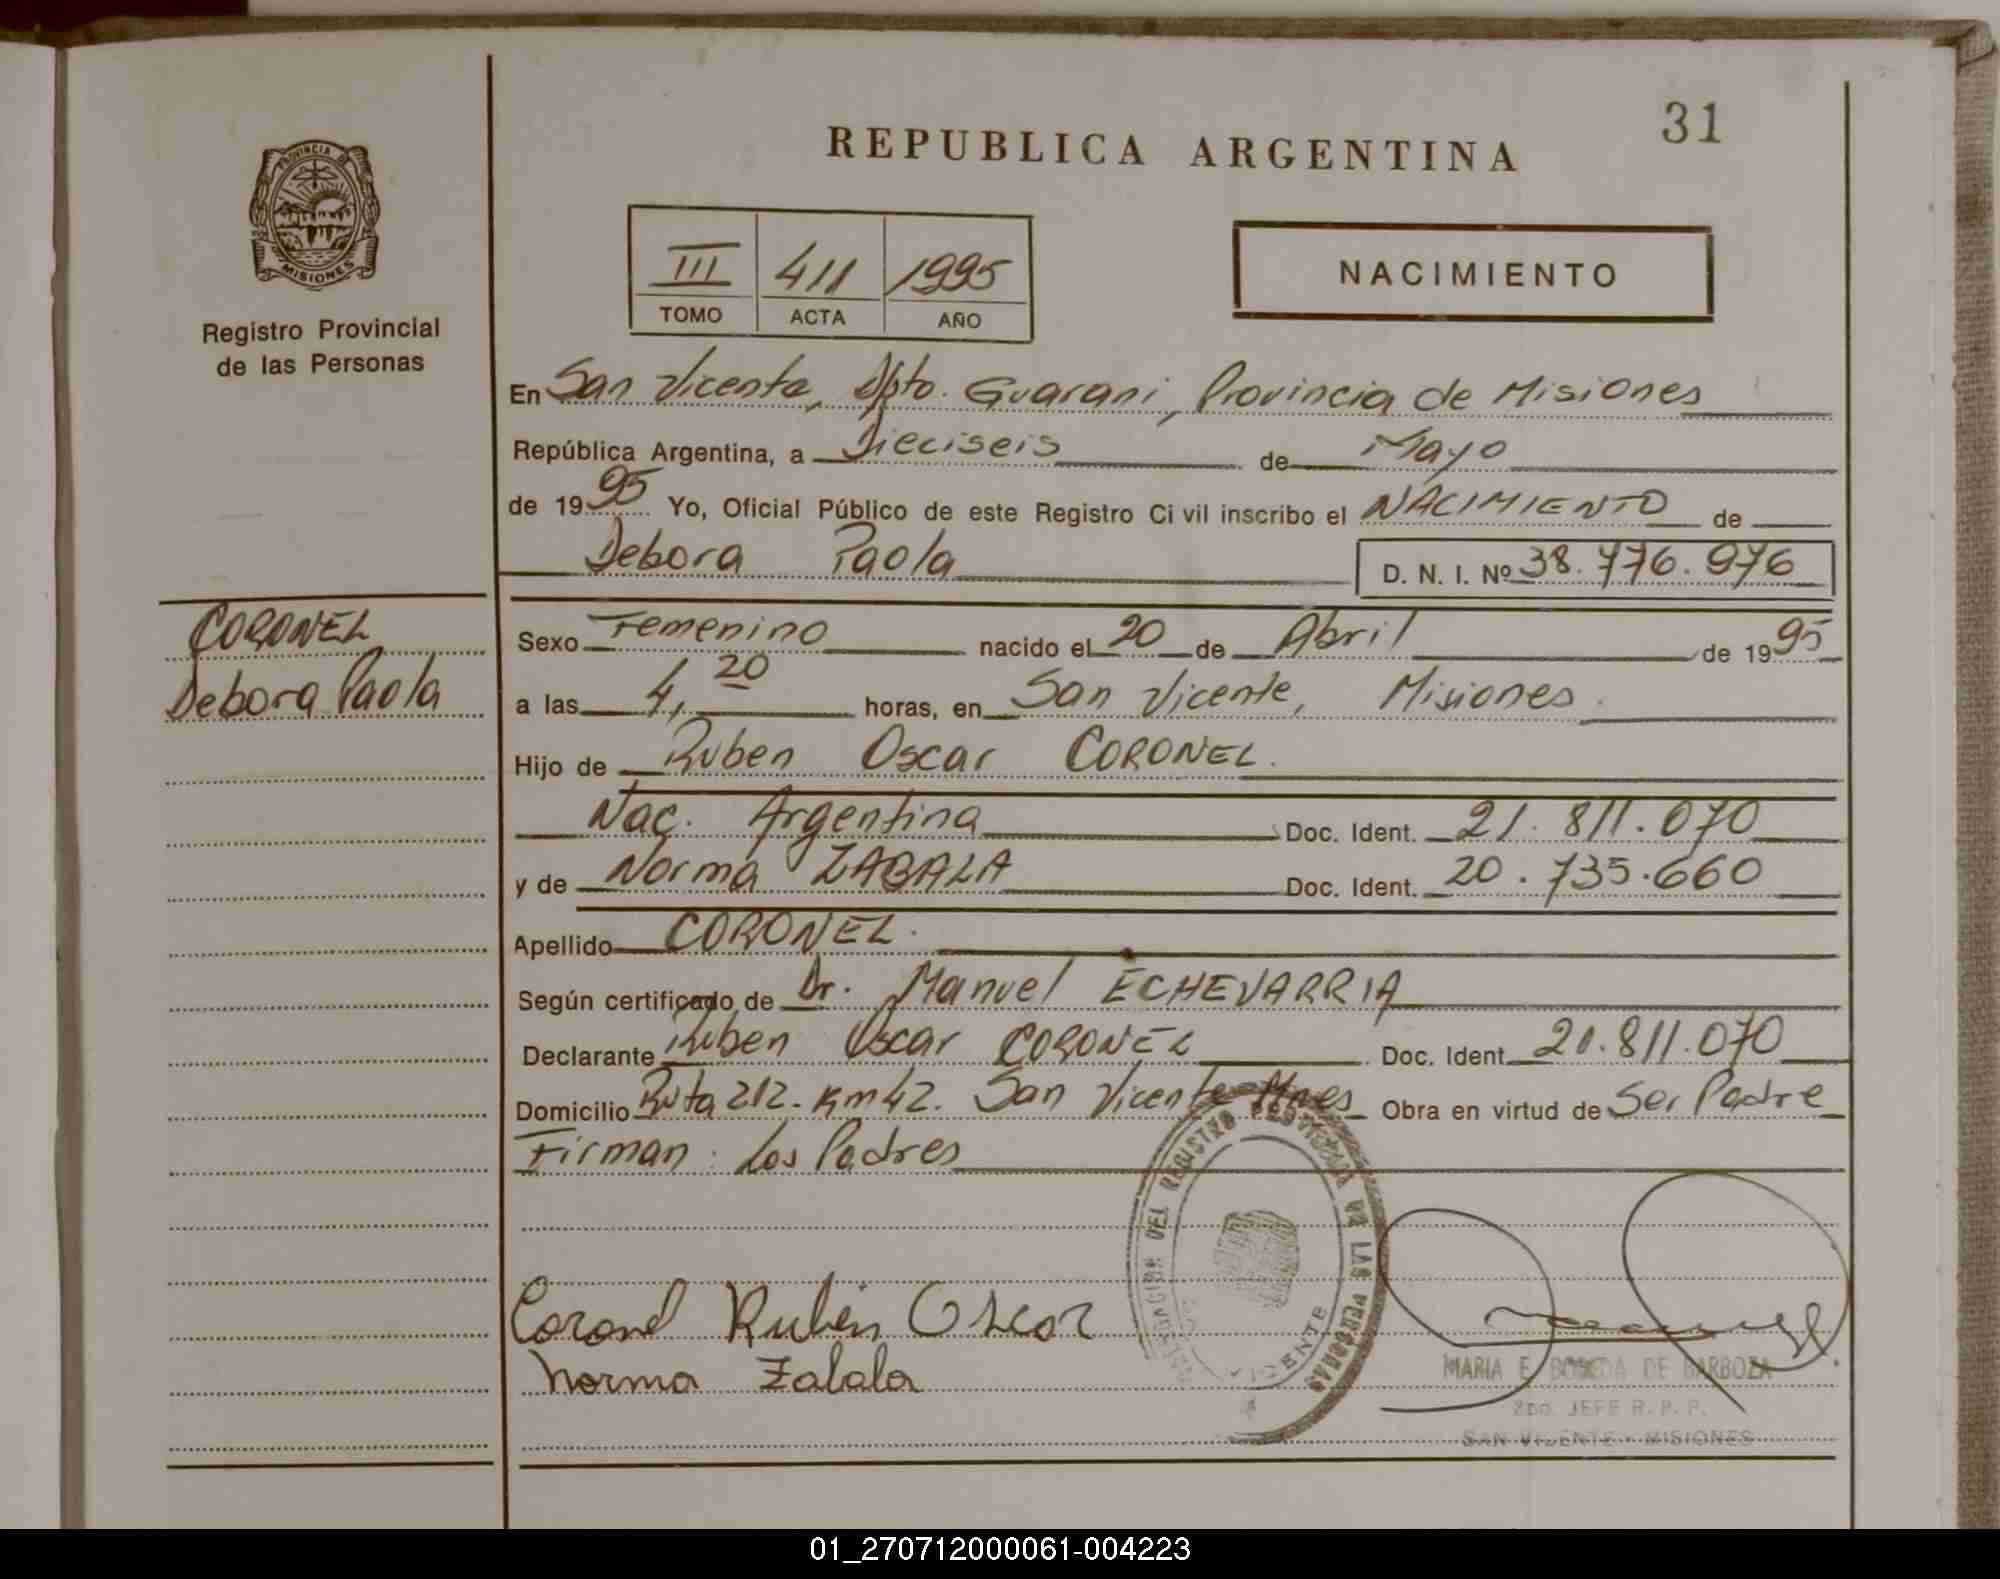 31
REPUBLICA ARGENTINA
PROVINCIA DE
MISIONES
Registro Provincial
de las Personas
III 411 1995
TOMO ACTA AÑO
NACIMIENTO
En San Vicente, Dpto. Guarani, Provincia de Misiones
República Argentina, a Dieciseis de Mayo
de 1995 Yo, Oficial Público de este Registro Civil inscribo el NACIMIENTO de
Debora Paola D. N. I. Nº 38.776.976
CORONEL
Debora Paola
Sexo Femenino nacido el 20 de Abril de 1995
a las 4,20 horas, en San Vicente, Misiones.
Hijo de Ruben Oscar CORONEL.
Nac. Argentina Doc. Ident. 21.811.070
y de Norma ZABALA Doc. Ident. 20.735.660
Apellido CORONEL.
Según certificado de Dr. Manuel ECHEVARRIA
Declarante Ruben Oscar CORONEL Doc. Ident. 21.811.070
Domicilio Ruta 212. Km 42. San Vicente Mnes Obra en virtud de Ser Padre
Firman: Los Padres
DEL REGISTRO PROVINCIAL DE LAS PERSONAS
VICENTE
Coronel Rubén Oscar
Norma Zabala
MARIA E. DE BARBOZA
2do. JEFE R. P. P.
SAN VICENTE - MISIONES
01_270712000061-004223